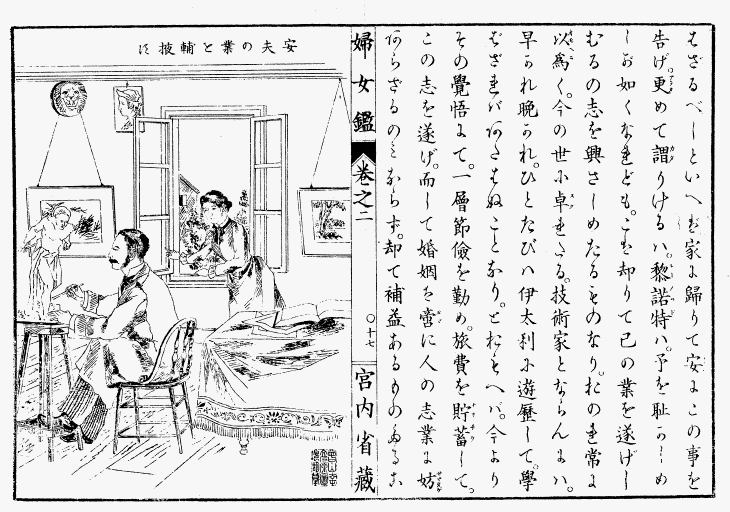 はざるべしといへば家に歸りて安にこの事を
告げ。更めて謂りけるハ。黎諾特ハ。予を恥かしめ
しが如くなれども。こは却りて己の業を遂げし
むるの志を興さしめたるものなり。おのれ常に
以爲く。今の世に卓れたる。技術家とならんにハ。
早かれ晩かれ。ひとたびハ伊太利に遊歷して。學
ばざれバあたはぬことなり。とおもへバ。今より
その覺悟にて。一層節儉を勤め。旅費を貯蓄して。
この志を遂げ。而して婚姻は啻に人の志業に妨
あらざるのみならず。却て補益あるものなるこ
婦女鑑
卷之二
〇十七
宮内省藏
安夫の業を輔披す